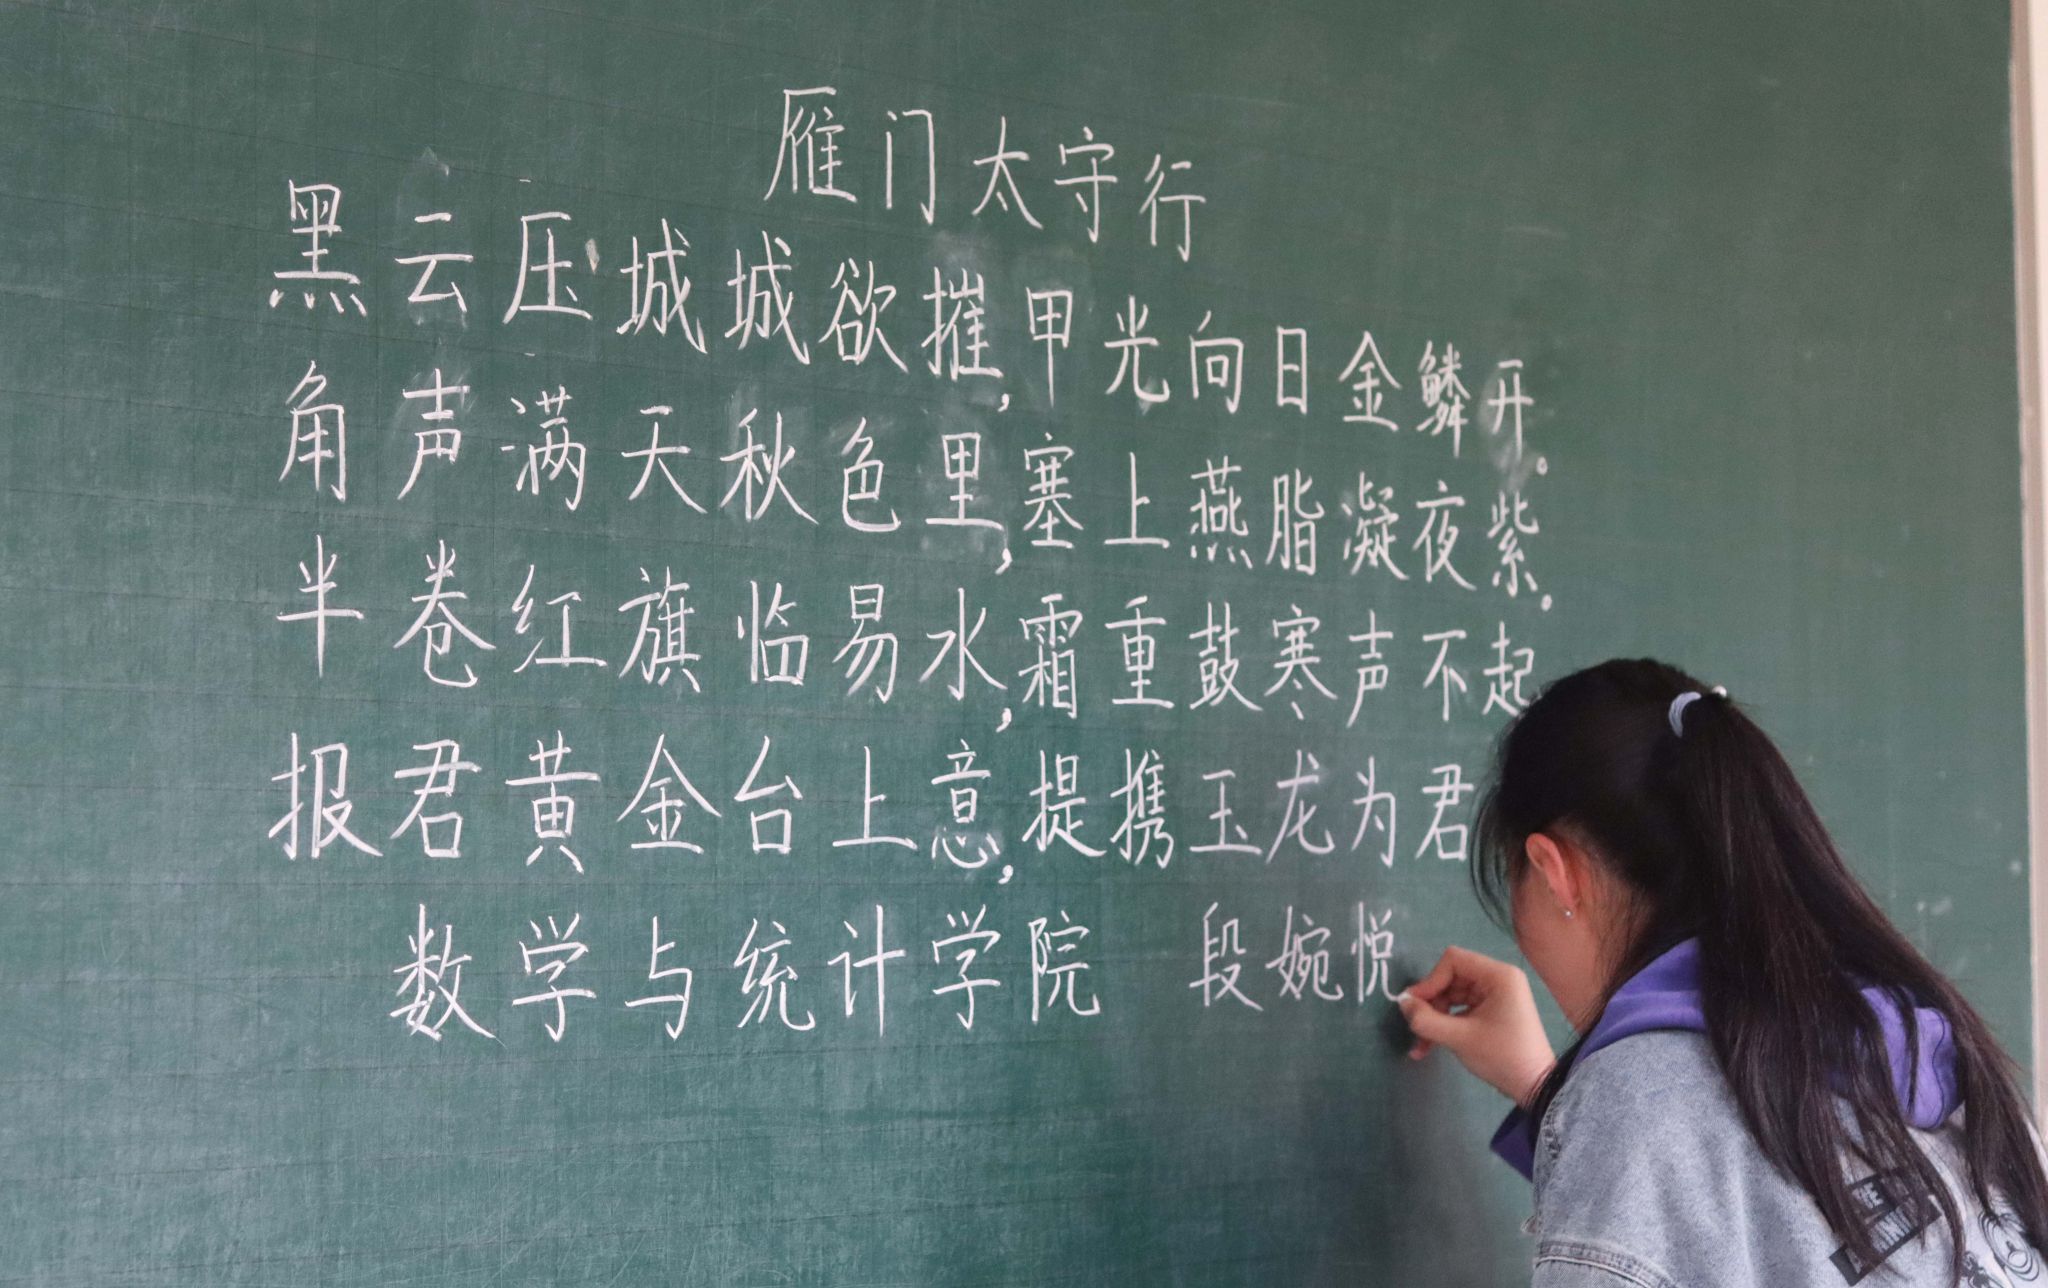 雁门太守行
黑云压城城欲摧,甲光向日金鳞开。
角声满天秋色里,塞上燕脂凝夜紫。
半卷红旗临易水,霜重鼓寒声不起
报君黄金台上意,提携玉龙为君
数学与统计学院 段婉悦